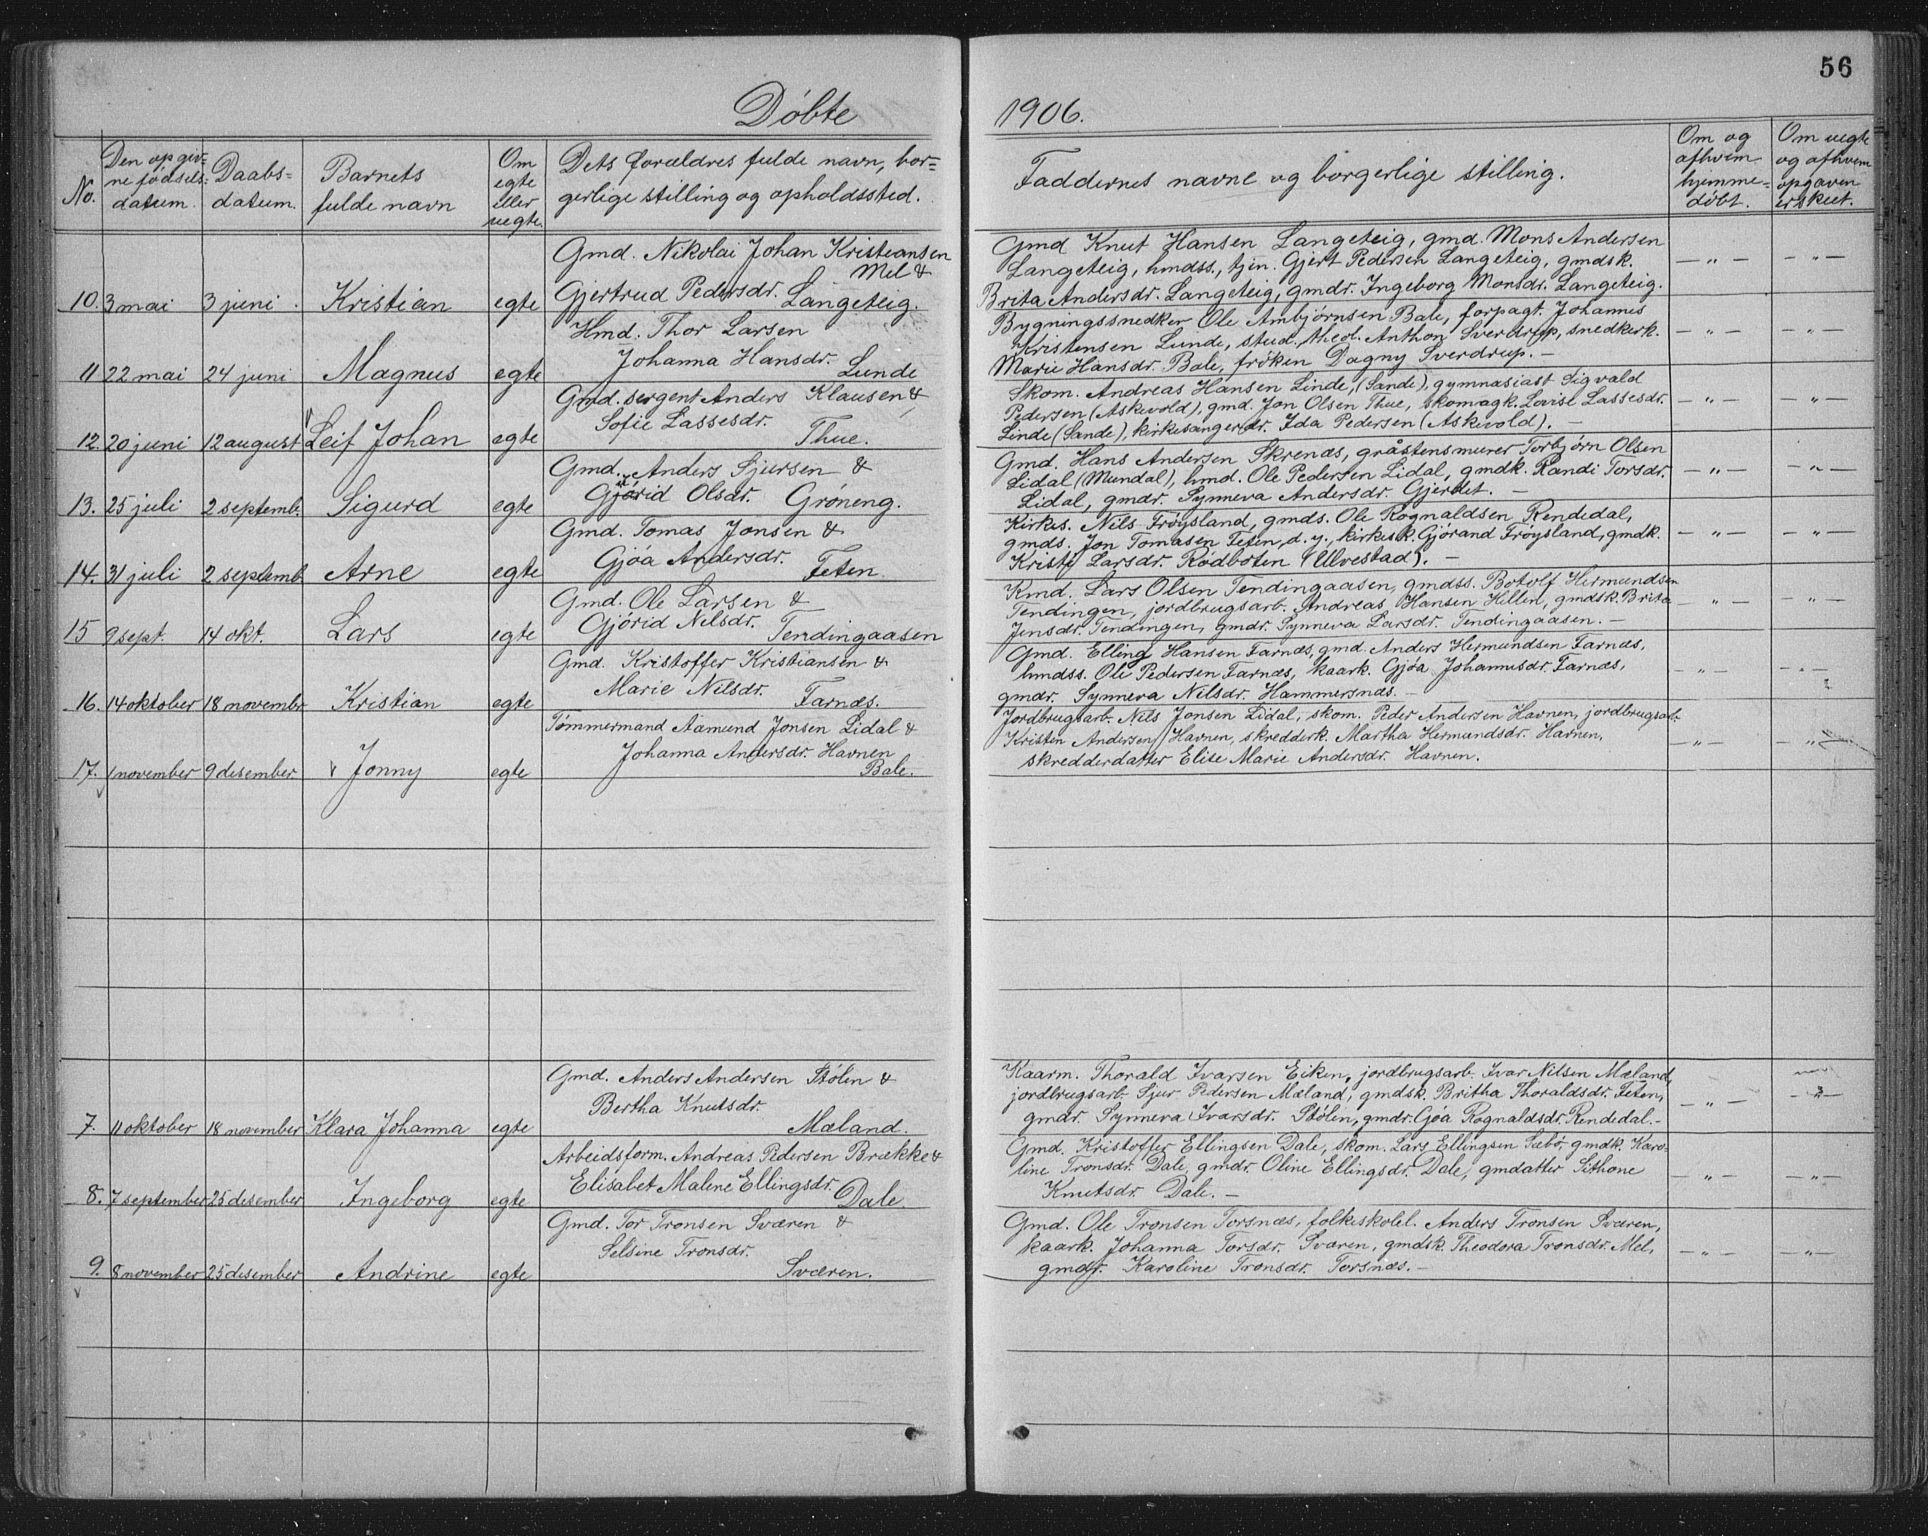 56
Døbte 1906.
No.
Den opgiv-
ne fødsels-
datum.
Daabs-
datum.
Barnets
fulde navn
Om
egte
eller
uegte
Dets forældres fulde navn, bor-
gerlige stilling og opholdssted.
Faddernes navne og borgerlige stilling.
Om og
afhvem
hjemme-
døbt.
Om uegte
og afhvem
opgaven
er skeet.
10. 3 mai 3 juni Kristian egte
Gmd. Nikolai Johan Kristiansen
Mel &
Gjertrud Pedersdr. Langeteig.
Gmd Knut Hansen Langeteig, gmd. Mons Andersen
Langeteig, hmdss., tjen. Gjert Pedersen Langeteig, gmdsk.
Brita Andersdr. Langeteig, gmdr. Ingeborg Monsdr. Langeteig.
— " — — " —
11 22 mai 24 juni Magnus egte
Hmd. Thor Larsen
Johanna Hansdr. Lunde
Bygningssnedker Ole Ambjørnsen Bale, forpagt. Johannes
Kristensen Lunde, stud. theol. Anthon Sverdrup, snedkerk.
Marie Hansdr. Bale, frøken Dagny Sverdrup. —
— " — — " —
12. 20 juni 12 august Leif Johan egte
Gmd. sergent Anders Klausen &
Sofie Lassesdr.
Thue.
Skom. Andreas Hansen Linde, (Sande), gymnasiast Sigvald
Pedersen (Askevold), gmd. Jon Olsen Thue, skomagk. Lovise Lassesdr.
Linde (Sande), kirkesangerdr. Ida Pedersen (Askevold). —
— " — — " —
13. 25 juli 2 septemb. Sigurd egte
Gmd. Anders Sjursen &
Gjørid Olsdr. Grøneng.
Gmd. Hans Andersen Skrenæs, gråstensmurer Torbjørn Olsen
Lidal (Mundal), hmd. Ole Pedersen Lidal, gmdk. Randi Torsdr.
Lidal, gmdr. Synneva Andersdr. Gjerdet. —
— " — — " —
14. 31 juli 2 septemb. Arne egte
Gmd. Tomas Jonsen &
Gjøa Andersdr. Feten.
Kirkes. Nils Frøysland, gmds. Ole Rognaldsen Rendedal,
gmds. Jon Tomasen Feten, d. y., kirkesk. Gjørand Frøysland, gmdk.
Kristi Larsdr. Rødboten (Ulvestad). —
— " — — " —
15 9 sept. 14 okt. Lars egte
Gmd. Ole Larsen &
Gjørid Nilsdr. Tendingaasen
Kmd. Lars Olsen Tendingaasen, gmdss. Botolf Hermundsen
Tendingen, jordbrugsarb. Andreas Hansen Hillen, gmdsk. Brita
Jensdr. Tendingen, gmdr. Synneva Larsdr. Tendingaasen. —
— " — — " —
16. 14 oktober 18 novembr. Kristian egte
Gmd. Kristoffer Kristiansen &
Marie Nilsdr. Farnæs.
Gmd. Elling Hansen Farnæs, gmd. Anders Hermundsen Farnæs,
hmdss. Ole Pedersen Farnæs, kaark. Gjøa Johannesdr. Farnæs,
gmdr. Synneva Nilsdr. Hammersnæs. —
" — — " —
17. 1 november 9 desember Jonny egte
Tømmermand Aamund Jonsen Lidal &
Johanna Andersdr. Havnen
Bale.
Jordbrugsarb. Nils Jonsen Lidal, skom. Peder Andersen Havnen, jordbrugsarb.
Kristen Andersen Havnen, skredderk. Martha Hermundsdr. Havnen,
skredderdatter Elise Marie Andersdr. Havnen.
— " — — " —
7. 11 oktober 18 november Klara Johanna egte
Gmd. Anders Andersen Stølen &
Bertha Knutsdr.
Mæland.
Kaarm. Thorald Ivarsen Eiken, jordbrugsarb. Ivar Nilsen Mæland,
jordbrugsarb. Sjur Pedersen Mæland, gmdsk. Britha Thoraldsdr. Feten,
gmdr. Synneva Ivarsdr. Stølen, gmdr. Gjøa Rognaldsdr. Rendedal. —
— " —
8. 7 september 25 desember Ingeborg egte
Arbeidsform. Andreas Pedersen Brække &
Elisabet Malene Ellingsdr. Dale.
Gmd. Kristoffer Ellingsen Dale, skom. Lars Ellingsen Sæbø, gmdk. Karo-
line Tronsdr. Dale, gmdr. Oline Ellingsdr. Dale, gmdatter Sithone
Knutsdr. Dale. —
— " — — " —
9. 8 november 25 desember Andrine egte
Gmd. Tor Tronsen Sværen &
Selsine Tronsdr.
Sværen.
Gmd. Ole Tronsen Torsnæs, folkeskolel. Anders Tronsen Sværen,
kaark. Johanna Torsdr. Sværen, gmdsk. Theodora Tronsdr. Mel,
gmdr. Karoline Tronsdr. Torsnæs. —
— " — — " —